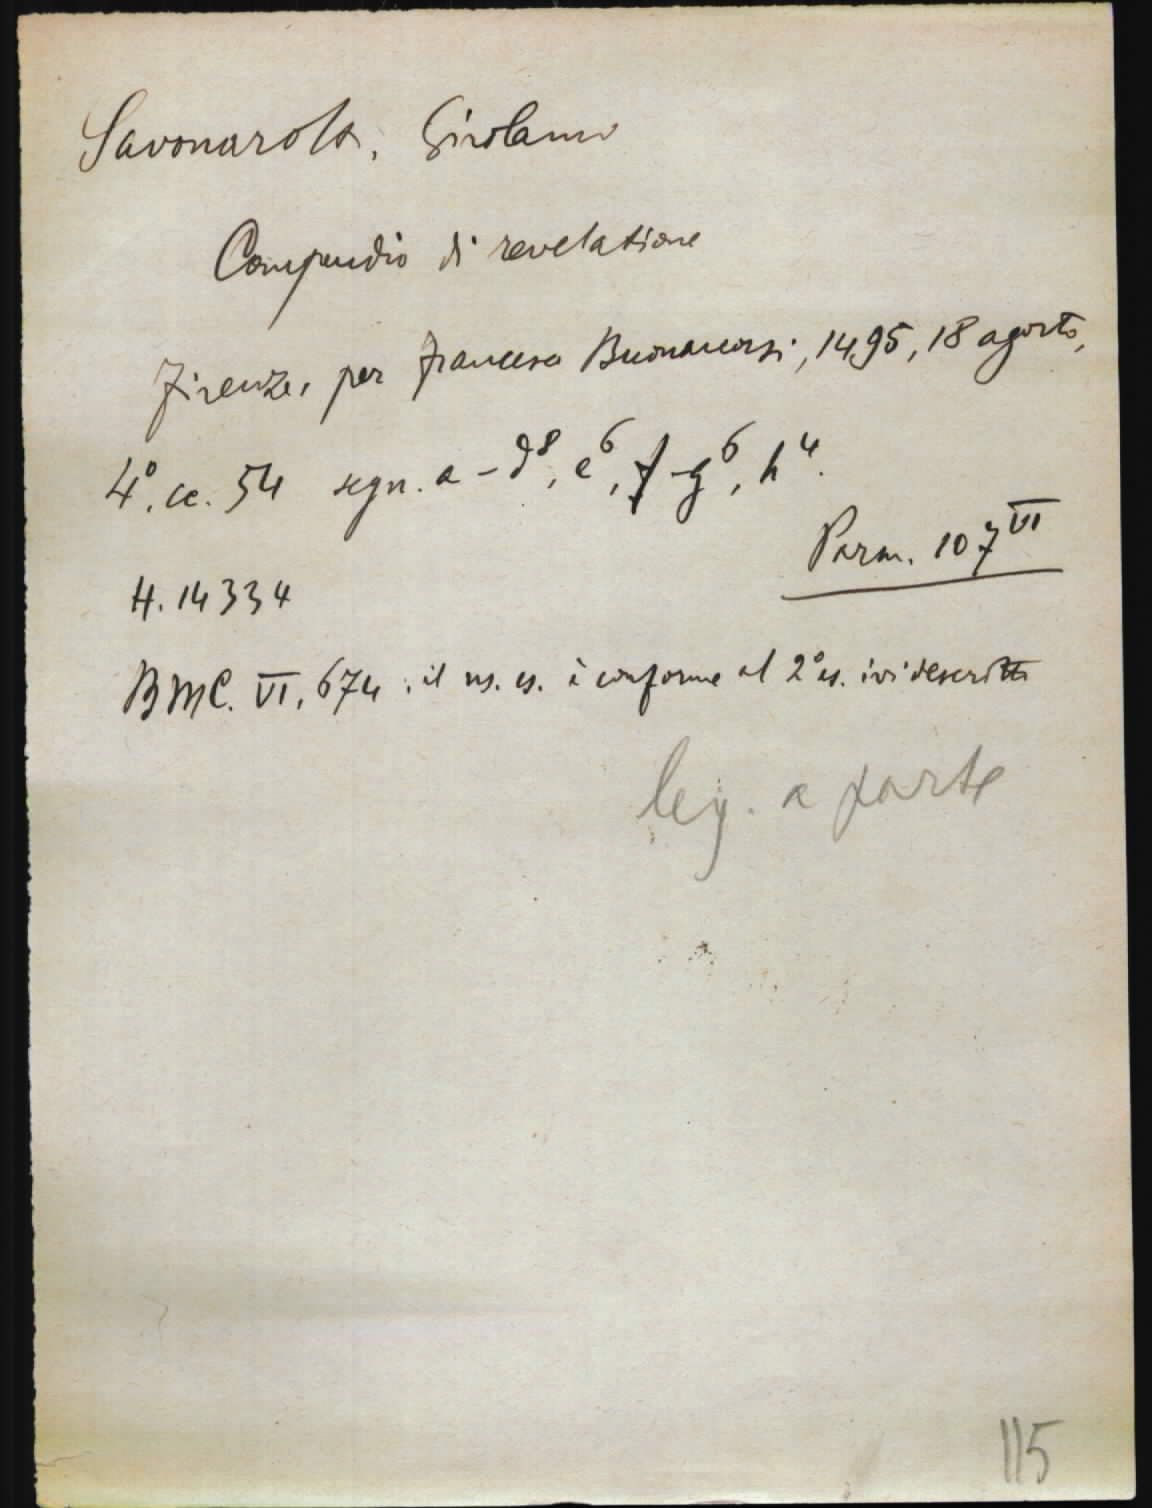 Savonarola, Girolamo
Compendio di revelatione
Firenze, per Francesco Buonaccorsi, 1495, 18 agosto,
4°, cc. 54 segn. a-d⁸, e⁶, f-g⁶, h⁴.
Parm. 107ⱽᴵ
H. 14334
BMC. VI, 674. il ns. es. è conforme al 2° es. ivi descritto
leg. a parte
115